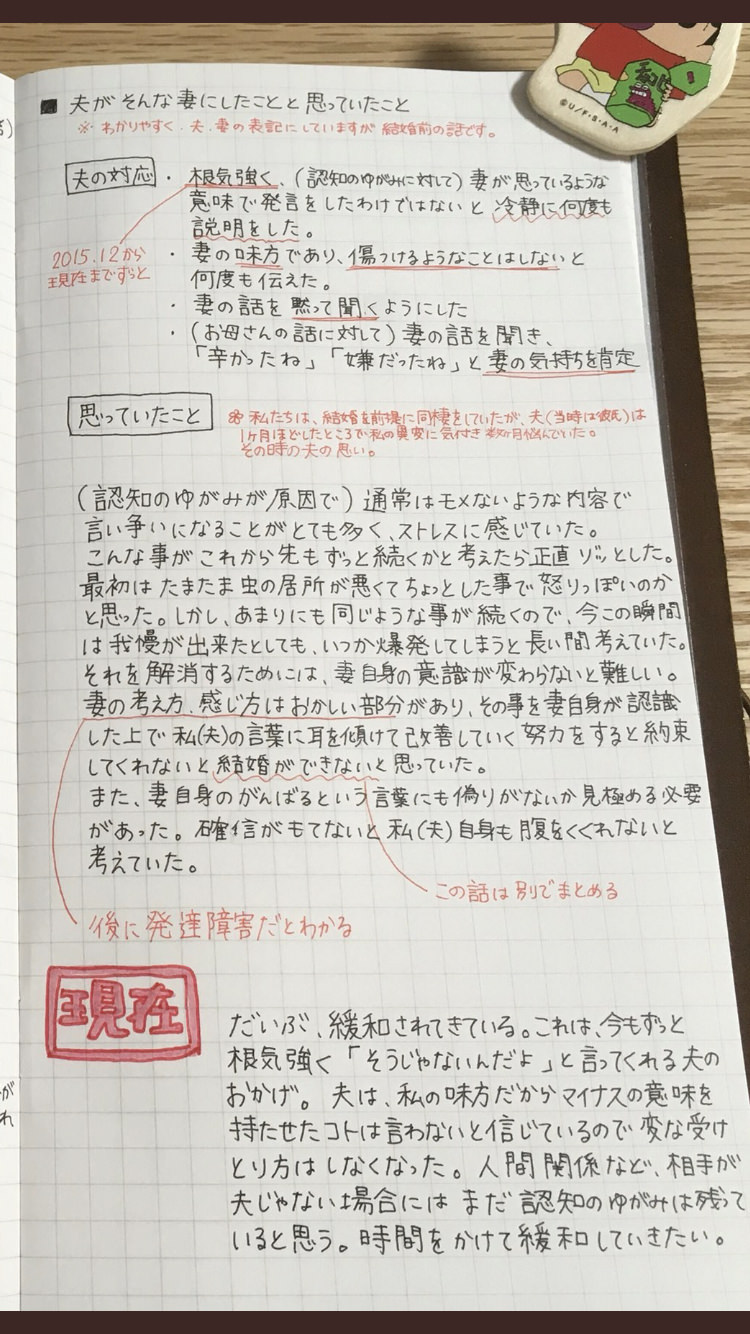 ■ 夫がそんな妻にしたことと思っていたこと
※わかりやすく、夫、妻の表記にしていますが結婚前の話です。
©U/F・S・A・A
夫の対応
・根気強く、(認知のゆがみに対して)妻が思っているような
意味で発言をしたわけではないと冷静に何度も
説明をした。
2015.12から
現在までずっと
・妻の味方であり、傷つけるようなことはしないと
何度も伝えた。
・妻の話を黙って聞くようにした
・(お母さんの話に対して)妻の話を聞き、
「辛かったね」「嫌だったね」と妻の気持ちを肯定
思っていたこと
※私たちは、結婚を前提に同棲をしていたが、夫(当時は彼氏)は
1ヶ月ほどしたところで私の異変に気付き数ヶ月悩んでいた。
その時の夫の思い。
(認知のゆがみが原因で)通常はモメないような内容で
言い争いになることがとても多く、ストレスに感じていた。
こんな事がこれから先もずっと続くかと考えたら正直ゾッとした。
最初はたまたま虫の居所が悪くてちょっとした事で怒りっぽいのか
と思った。しかし、あまりにも同じような事が続くので、今この瞬間
は我慢が出来たとしても、いつか爆発してしまうと長い間考えていた。
それを解消するためには、妻自身の意識が変わらないと難しい。
妻の考え方、感じ方はおかしい部分があり、その事を妻自身が認識
した上で私(夫)の言葉に耳を傾けて改善していく努力をすると約束
してくれないと結婚ができないと思っていた。
また、妻自身のがんばるという言葉にも偽りがないか見極める必要
があった。確信がもてないと私(夫)自身も腹をくくれないと
考えていた。
この話は別でまとめる
後に発達障害だとわかる
現在
だいぶ、緩和されてきている。これは、今もずっと
根気強く「そうじゃないんだよ」と言ってくれる夫の
おかげ。夫は、私の味方だからマイナスの意味を
持たせたコトは言わないと信じているので変な受け
とり方はしなくなった。人間関係など、相手が
夫じゃない場合にはまだ認知のゆがみは残って
いると思う。時間をかけて緩和していきたい。